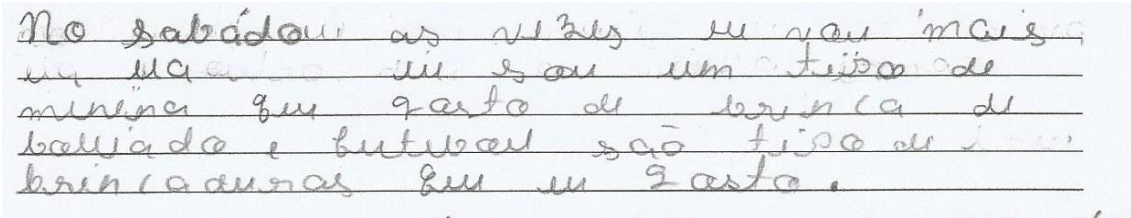 No sabádou as vezes eu vou mais
na rua eu sou um tipo de
minina que gosto de brinca de
baliado e futubou são tipo de
brincaduras que eu gosto.